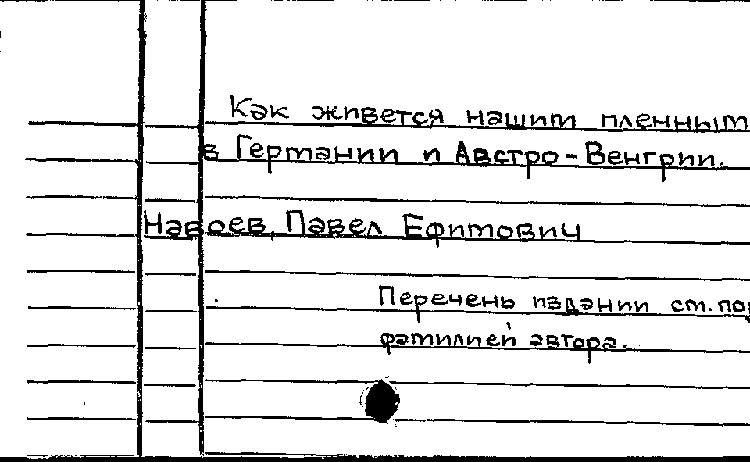 Как живется нашим пленным
в Германии и Австро-Венгрии.
Навоев, Павел Ефимович
Перечень издании см. под
фамилией автора.